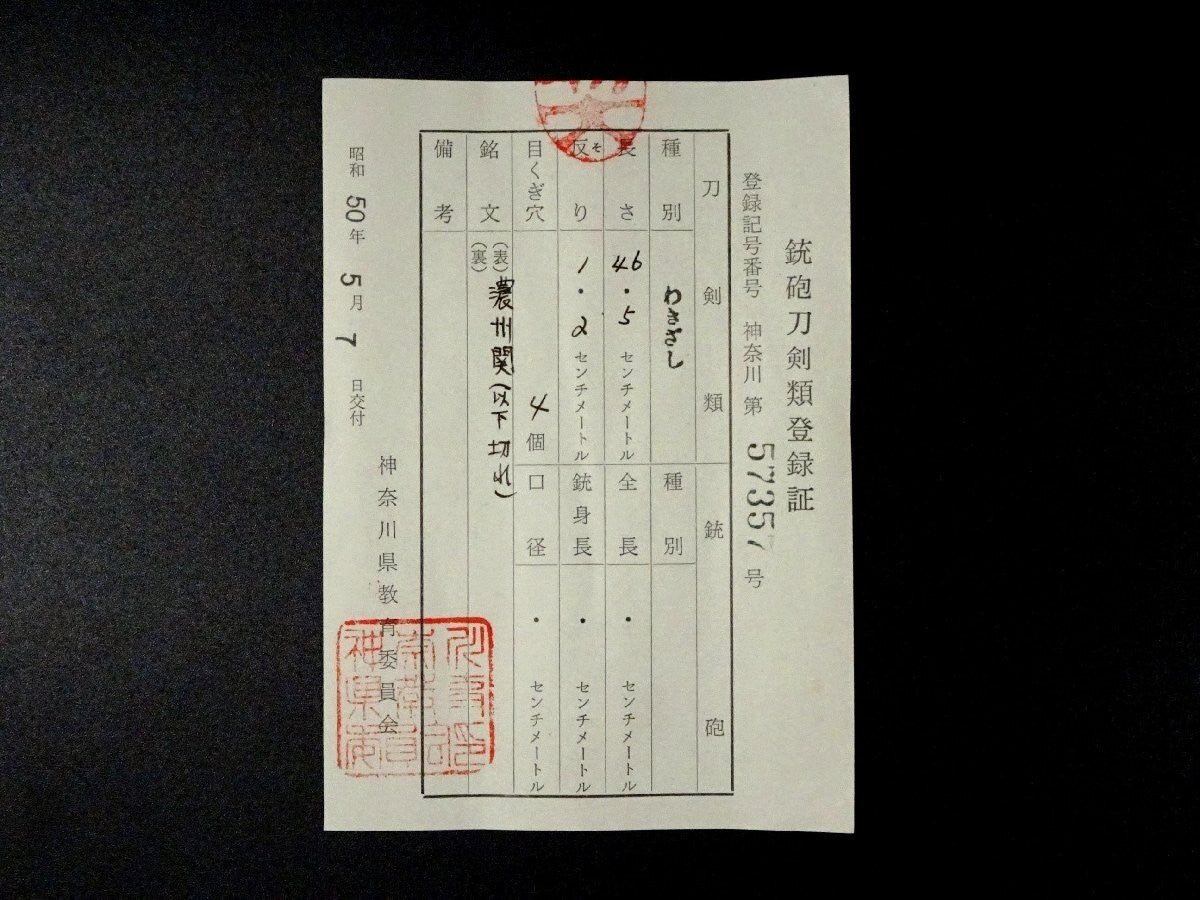 銃砲刀剣類登録証
登録記号番号 神奈川 第 57357 号
刀剣類
種別 わきざし
長さ 46・5 センチメートル
反り そ 1・2 センチメートル
目くぎ穴 4 個
銘文 (表) 濃州関(以下切れ)
(裏)
備考
銃砲
種別
全長 ・ センチメートル
銃身長 ・ センチメートル
口径 ・ センチメートル
昭和 50年 5月 7 日交付
神奈川県教育委員会